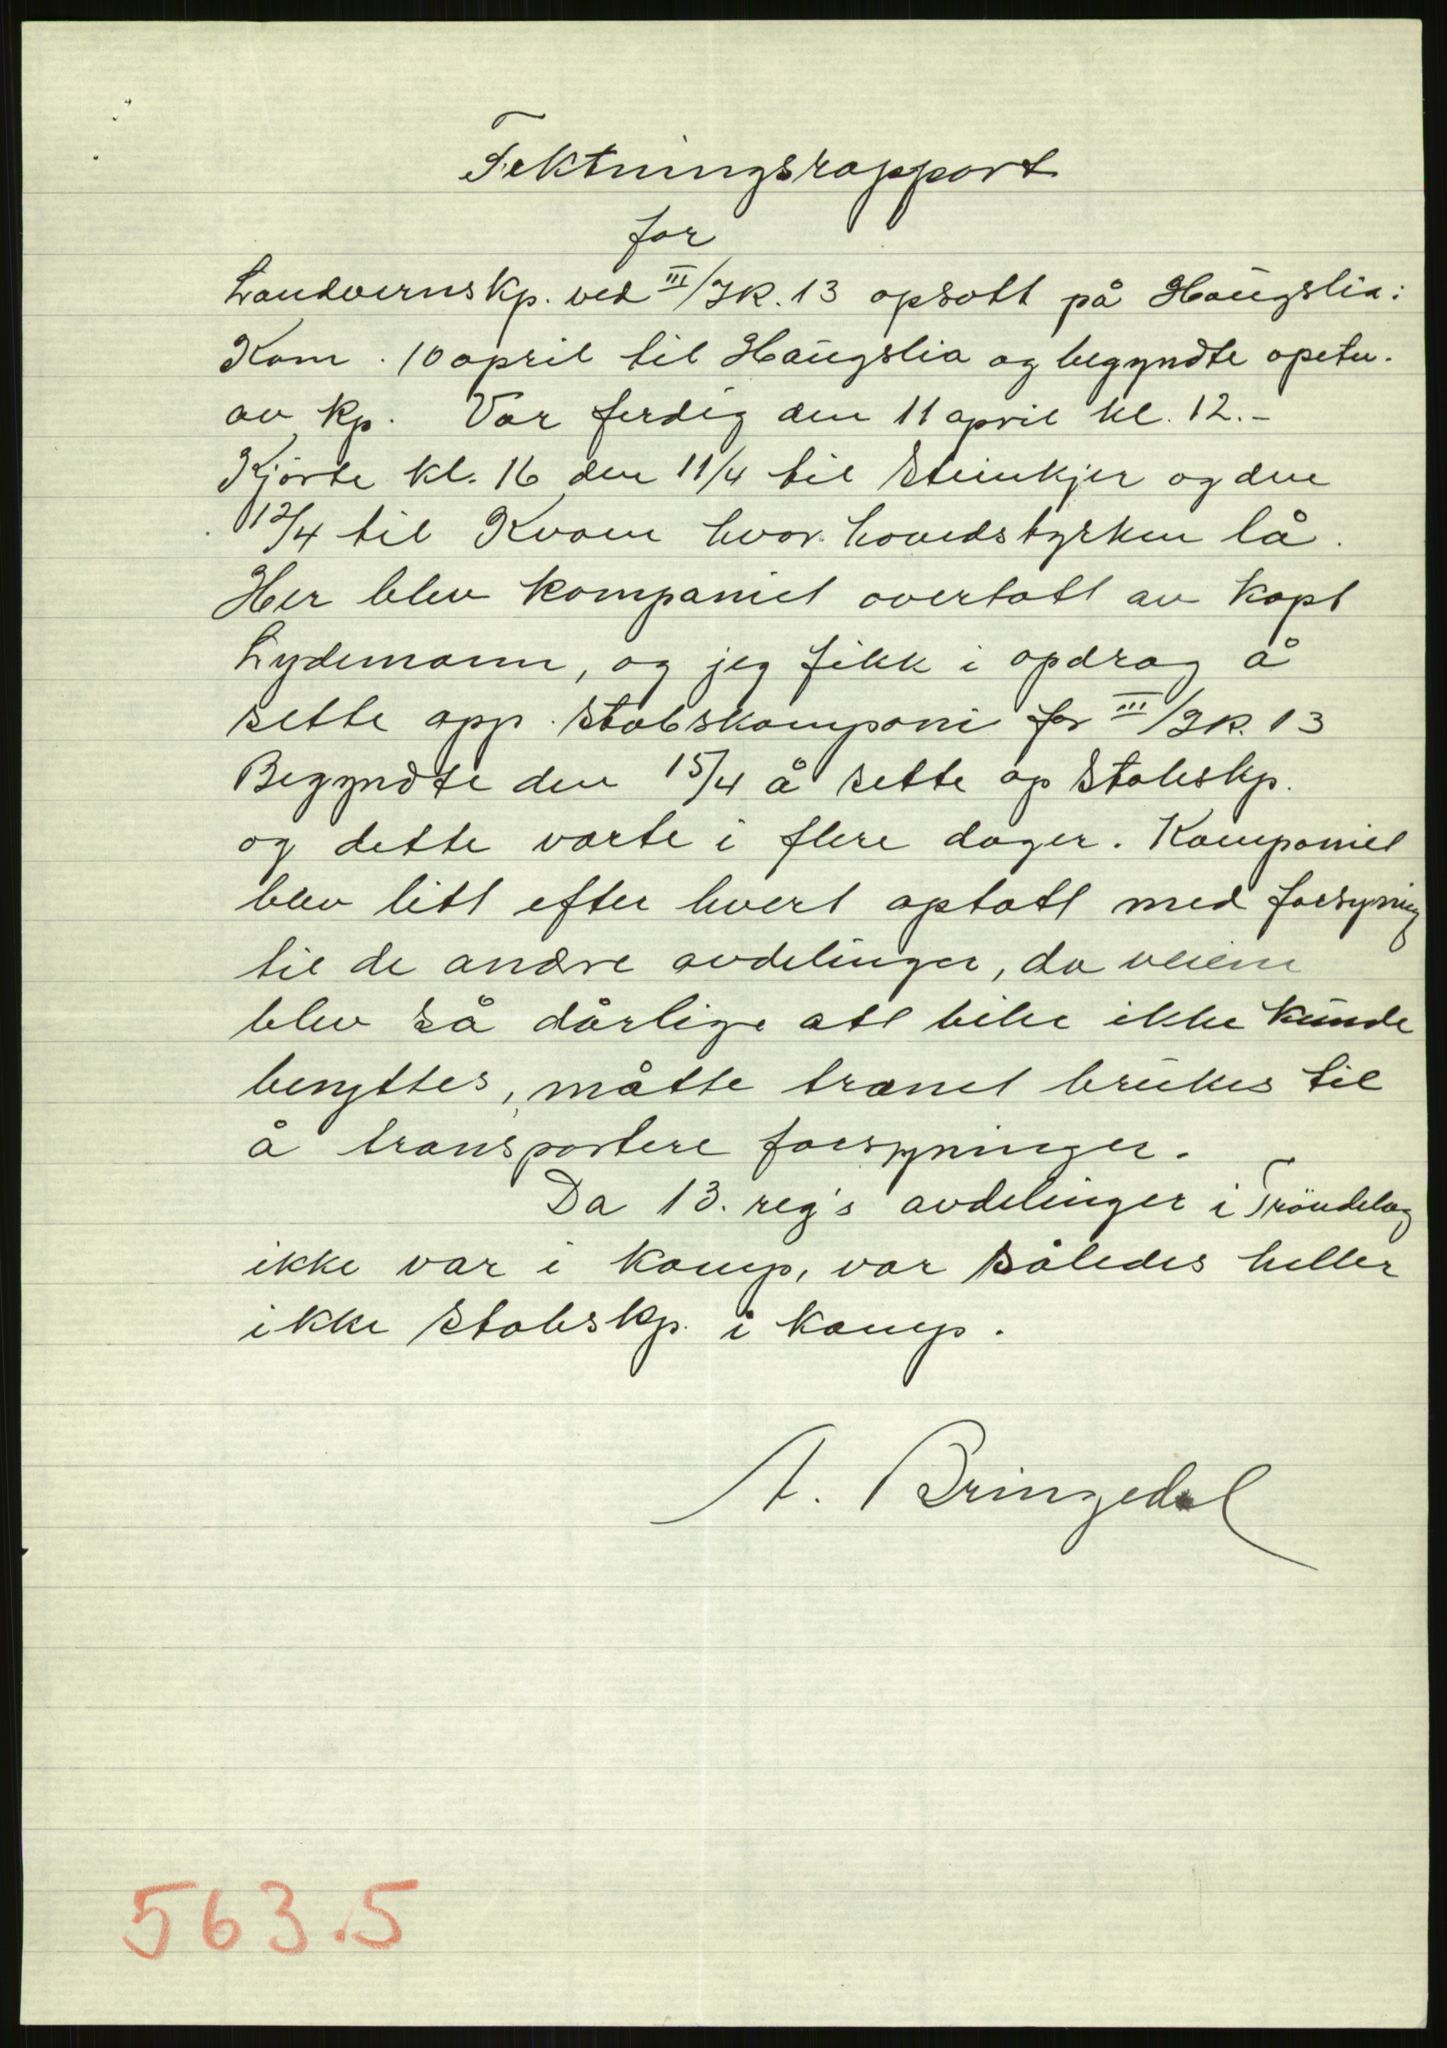 Fektningsrapport
for
Landvernskp. ved III/IR. 13 opsatt på Haugslia:
Kom. 10 april til Haugslia og begyndte
av kp. Var ferdig den 11 april kl. 12.-
Kjörte kl. 16 den 11/4 til Steinkjer og den
12/4 til Kvam hvor hovedstyrken lå.
Her blev kompaniet overtatt av kapt
Lydemann, og jeg fikk i opdrag å
sette opp. stabskompani for III/IR. 13
Begyndte den 15/4 å sette op stabskp.
og dette varte i flere dager. Kompaniet
blev litt efter hvert optatt med forsyning
til de andre avdelinger, da veiene
blev så dårlige att biler ikke kunde
benyttes, måtte trænet brukes til
å transportere forsyninger.
Da 13. reg's avdelinger i Tröndelag
ikke var i kamp, var således heller
ikke stabskp. i kamp.
A. Bringedal
563.5